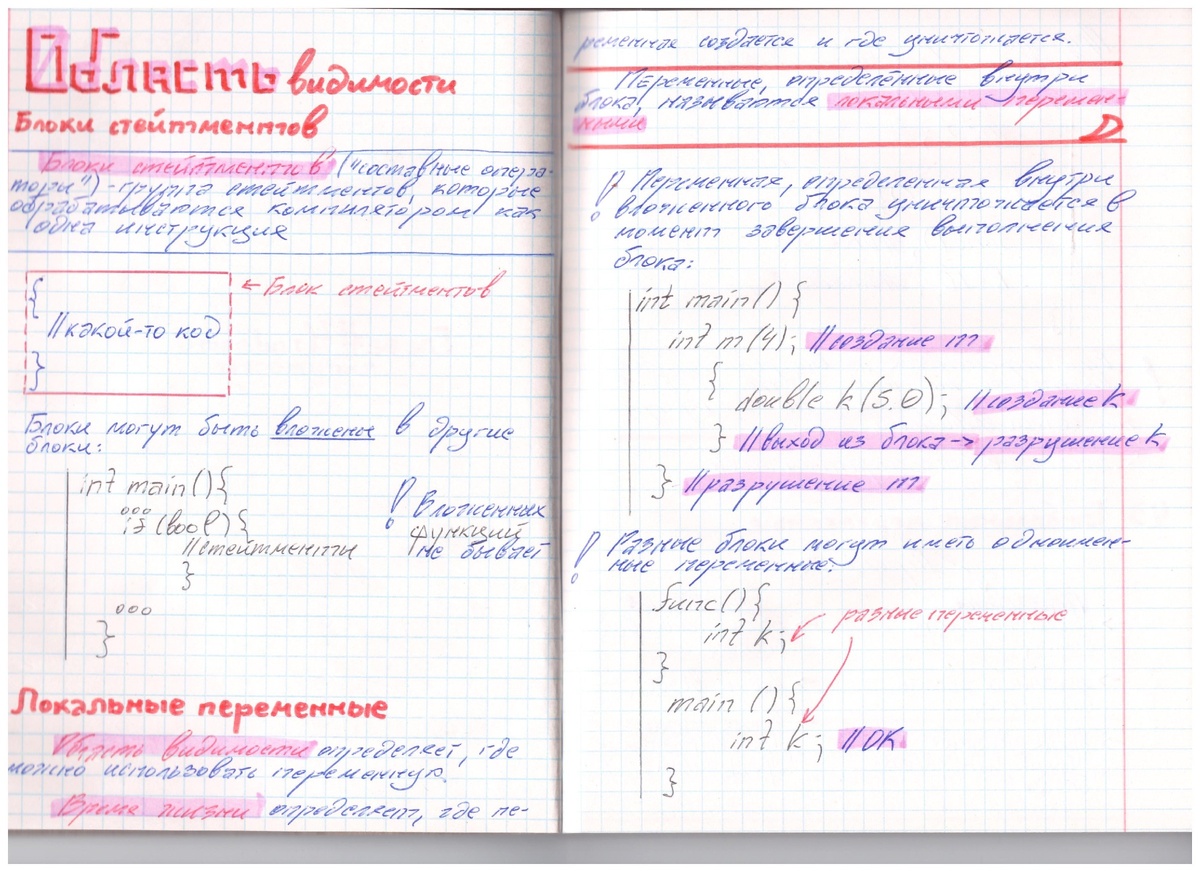 Область видимости
Блоки стейтментов
Блоки стейтментов ("составные опера-
торы") - группа стейтментов, которые
обрабатываются компилятором как
одна инструкция
{
//какой-то код
}
← Блок стейтментов
Блоки могут быть вложены в другие
блоки:
int main(){
ооо
if (bool) {
//стейтменты
}
ооо
}
! Вложенных
функций
не бывает
Локальные переменные
Область видимости определяет, где
можно использовать переменную.
Время жизни определяет, где пе-
ременная создается и где уничтожается.
Переменные, определённые внутри
блока, называются локальными перемен-
ными
! Переменная, определенная внутри
вложенного блока уничтожается в
момент завершения выполнения
блока:
int main() {
int m(4); //создание m
{
double k(5.0); //создание k
} //выход из блока -> разрушение k
} //разрушение m
! Разные блоки могут иметь одноимен-
ные переменные:
func() {
int k;
}
разные переменные
main () {
int k; //OK
}